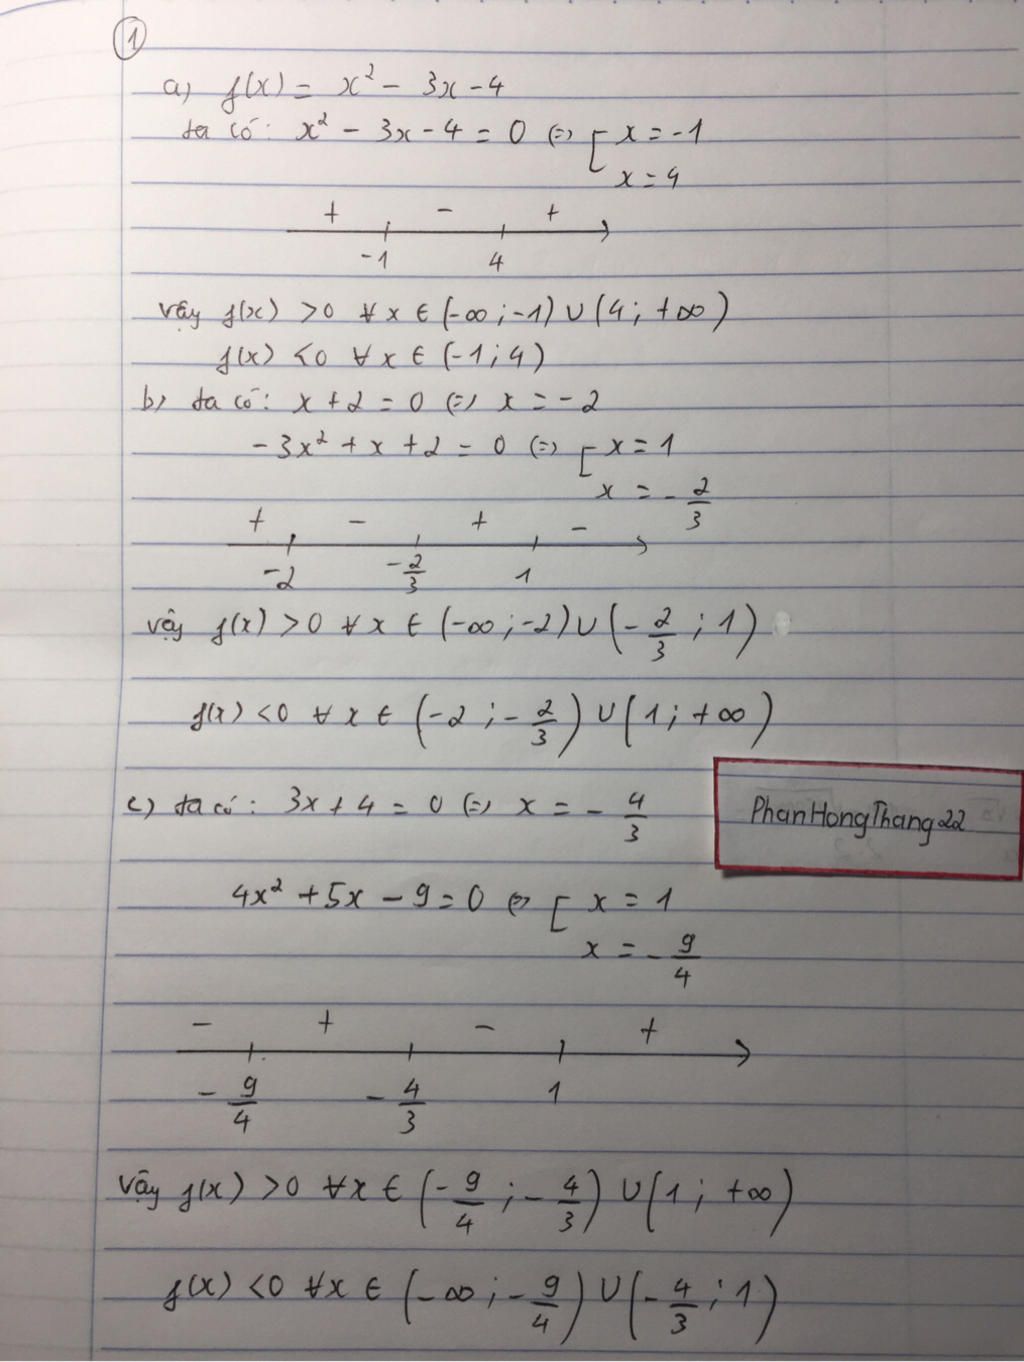 1
a) f(x) = x² - 3x - 4
ta có: x² - 3x - 4 = 0 (=) [ x = -1
x = 4
+ - +
-1 4
Vậy f(x) > 0 ∀x ∈ (-∞; -1) ∪ (4; +∞)
f(x) < 0 ∀x ∈ (-1; 4)
b) ta có: x + 2 = 0 (=) x = -2
-3x² + x + 2 = 0 (=) [ x = 1
x = -2/3
+ - + -
-2 -2/3 1
Vậy f(x) > 0 ∀x ∈ (-∞; -2) ∪ (-2/3; 1)
f(x) < 0 ∀x ∈ (-2; -2/3) ∪ (1; +∞)
c) ta có: 3x + 4 = 0 (=) x = -4/3
PhanHongThang22
4x² + 5x - 9 = 0 (=) [ x = 1
x = -9/4
- + - +
-9/4 -4/3 1
Vậy f(x) > 0 ∀x ∈ (-9/4; -4/3) ∪ (1; +∞)
f(x) < 0 ∀x ∈ (-∞; -9/4) ∪ (-4/3; 1)